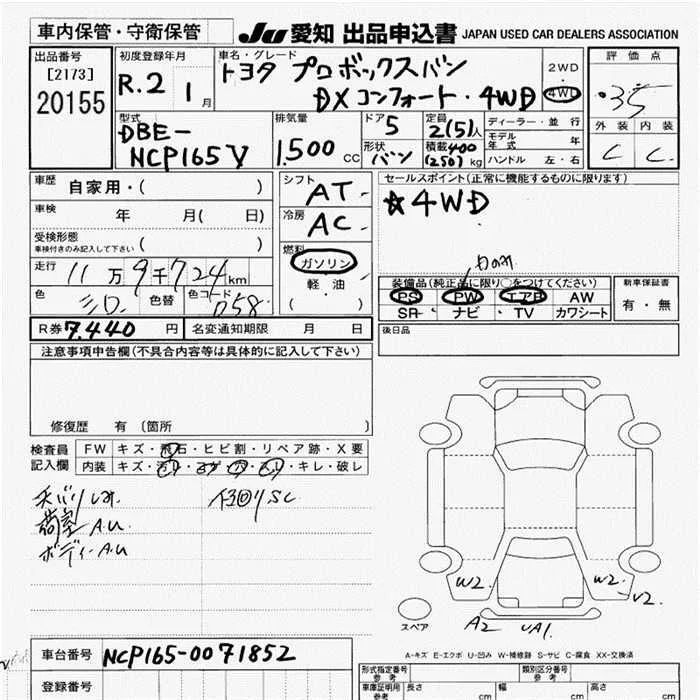 車内保管・守衛保管
JU 愛知 出品申込書 JAPAN USED CAR DEALERS ASSOCIATION
出品番号
[2173]
20155
初度登録年月
R.2 1月
車名・グレード
トヨタ プロボックスバン
DXコンフォート・4WD
2WD
4WD
評価点
35
外装 内装
C C
型式
DBE-
NCP165V
排気量
1.500 CC
ドア 5
形状 バン
定員 2(5)人
積載 400
(250) kg
ディーラー・並行
モデル年式 年
ハンドル 左・右
車歴 自家用・( )
車検 年 月( 日)
受検形態
車検付きのみ記入して下さい ( )
走行 11万9千724km
色 シロ 色替 色コード 058
R券 7.440 円 名変通知期限 月 日
シフト AT
冷房 AC
燃料
ガソリン
軽油
( )
セールスポイント(正常に機能するものに限ります)
☆4WD
装備品(純正品に限り○をつけてください)
PS PW エアB AW
SR ナビ TV カワシート
新車保証書
有・無
後日品
注意事項申告欄(不具合内容等は具体的に記入して下さい)
修復歴 有 〔箇所 〕
検査員
記入欄
FW キズ・飛石・ヒビ割・リペア跡・X要
内装 キズ・汚れ・コゲ・穴・スレ・キレ・破レ
荷室 A.U.
ボディーA.U
W2. W2.
V2.
A2 UA1.
スペア
A-キズ E-エクボ U-凹み W-補修跡 S-サビ C-腐食 XX-交換済
車台番号 NCP165-0071852
登録番号
形式指定番号
参考
類別区分番号
参考
車庫証明用
参考
長さ cm 幅 cm 高さ cm